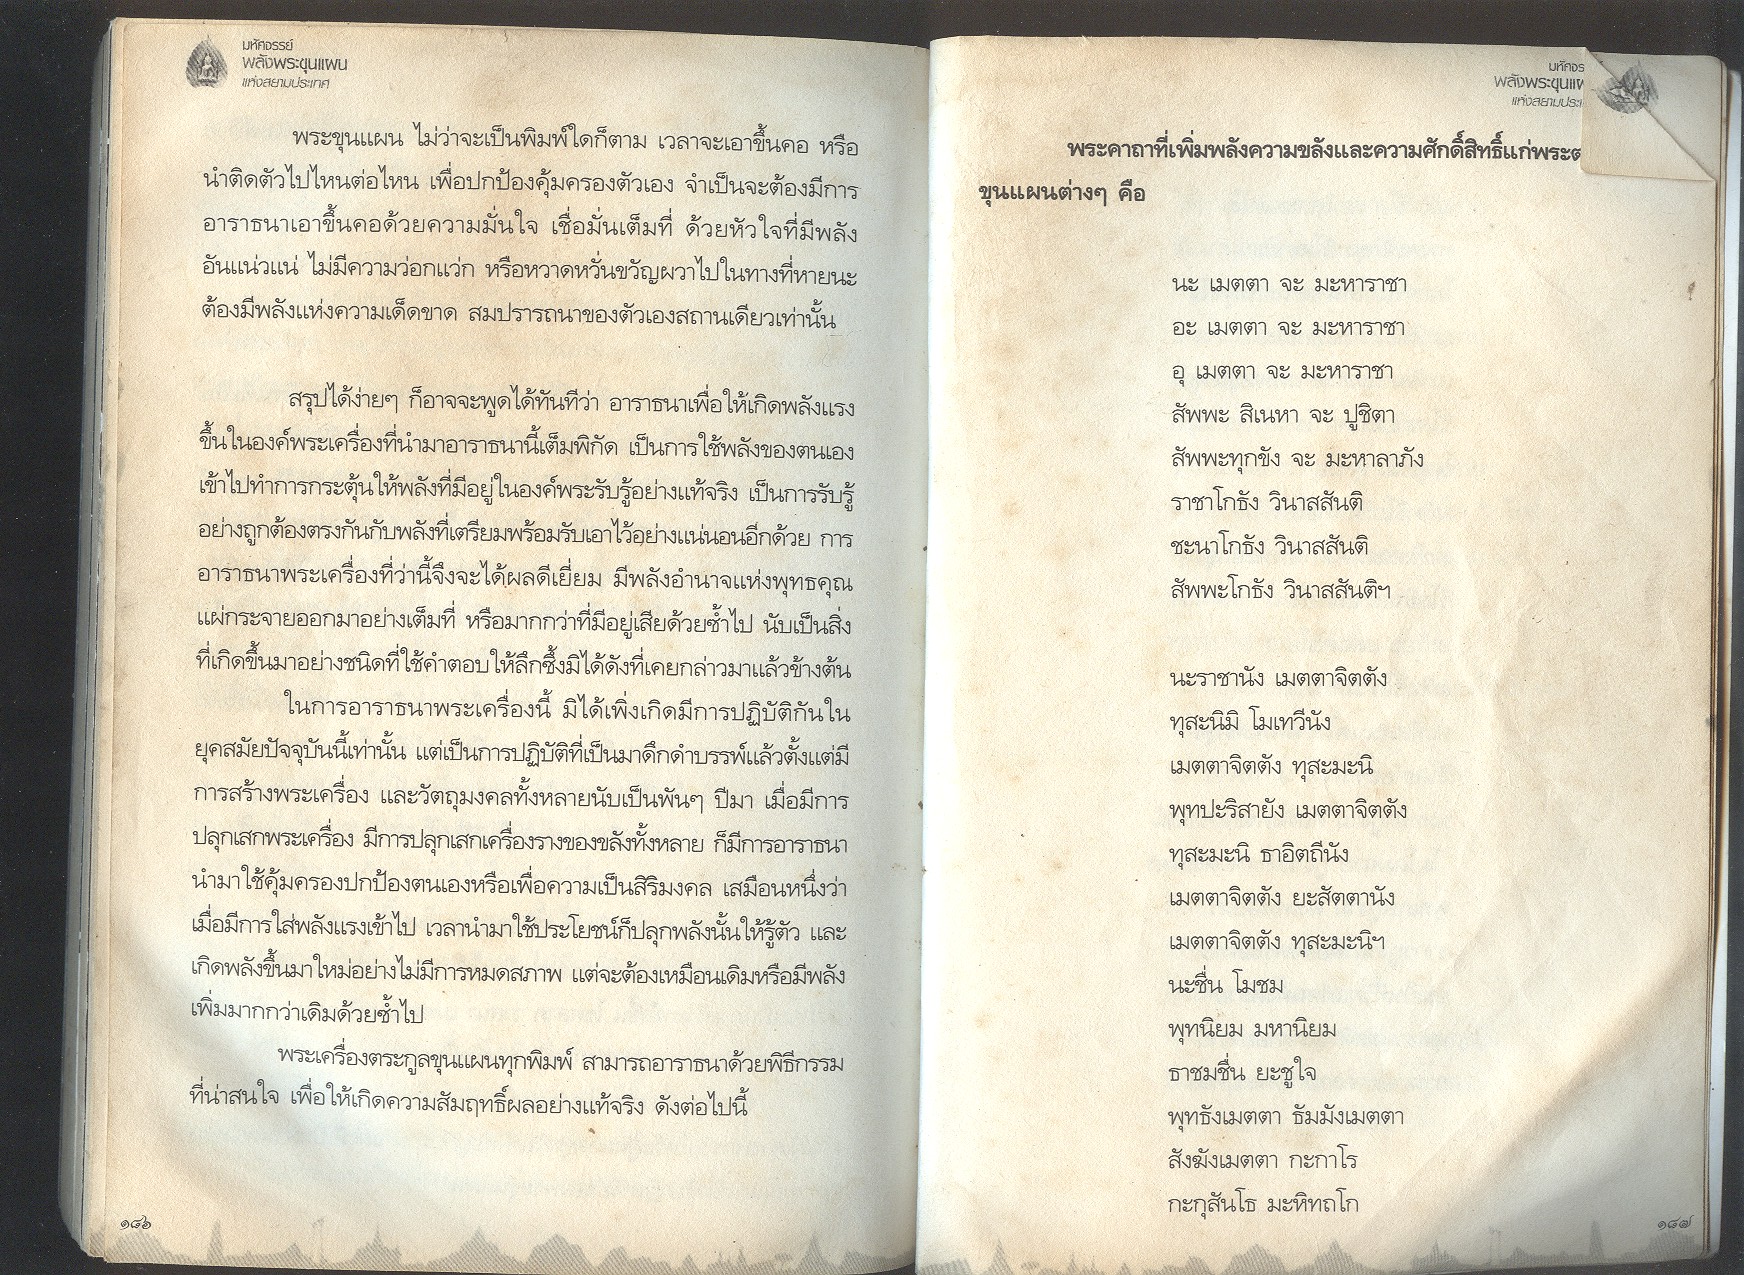 มหัศจรรย์
พลังพระขุนแผน
แห่งสยามประเทศ
พระขุนแผน ไม่ว่าจะเป็นพิมพ์ใดก็ตาม เวลาจะเอาขึ้นคอ หรือ
นำติดตัวไปไหนต่อไหน เพื่อปกป้องคุ้มครองตัวเอง จำเป็นจะต้องมีการ
อาราธนาเอาขึ้นคอด้วยความมั่นใจ เชื่อมั่นเต็มที่ ด้วยหัวใจที่มีพลัง
อันแน่วแน่ ไม่มีความว่อกแว่ก หรือหวาดหวั่นขวัญผวาไปในทางที่หายนะ
ต้องมีพลังแห่งความเด็ดขาด สมปรารถนาของตัวเองสถานเดียวเท่านั้น
สรุปได้ง่ายๆ ก็อาจจะพูดได้ทันทีว่า อาราธนาเพื่อให้เกิดพลังแรง
ขึ้นในองค์พระเครื่องที่นำมาอาราธนานี้เต็มพิกัด เป็นการใช้พลังของตนเอง
เข้าไปทำการกระตุ้นให้พลังที่มีอยู่ในองค์พระรับรู้อย่างแท้จริง เป็นการรับรู้
อย่างถูกต้องตรงกันกับพลังที่เตรียมพร้อมรับเอาไว้อย่างแน่นอนอีกด้วย การ
อาราธนาพระเครื่องที่ว่านี้จึงจะได้ผลดีเยี่ยม มีพลังอำนาจแห่งพุทธคุณ
แผ่กระจายออกมาอย่างเต็มที่ หรือมากกว่าที่มีอยู่เสียด้วยซ้ำไป นับเป็นสิ่ง
ที่เกิดขึ้นมาอย่างชนิดที่ใช้คำตอบให้ลึกซึ้งมิได้ดังที่เคยกล่าวมาแล้วข้างต้น
ในการอาราธนาพระเครื่องนี้ มิได้เพิ่งเกิดมีการปฏิบัติกันใน
ยุคสมัยปัจจุบันนี้เท่านั้น แต่เป็นการปฏิบัติที่เป็นมาดึกดำบรรพ์แล้วตั้งแต่มี
การสร้างพระเครื่อง และวัตถุมงคลทั้งหลายนับเป็นพันๆ ปีมา เมื่อมีการ
ปลุกเสกพระเครื่อง มีการปลุกเสกเครื่องรางของขลังทั้งหลาย ก็มีการอาราธนา
นำมาใช้คุ้มครองปกป้องตนเองหรือเพื่อความเป็นสิริมงคล เสมือนหนึ่งว่า
เมื่อมีการใส่พลังแรงเข้าไป เวลานำมาใช้ประโยชน์ก็ปลุกพลังนั้นให้รู้ตัว และ
เกิดพลังขึ้นมาใหม่อย่างไม่มีการหมดสภาพ แต่จะต้องเหมือนเดิมหรือมีพลัง
เพิ่มมากกว่าเดิมด้วยซ้ำไป
พระเครื่องตระกูลขุนแผนทุกพิมพ์ สามารถอาราธนาด้วยพิธีกรรม
ที่น่าสนใจ เพื่อให้เกิดความสัมฤทธิ์ผลอย่างแท้จริง ดังต่อไปนี้
๑๘๖
มหัศจร
พลังพระขุนแผ
แห่งสยามประเ
พระคาถาที่เพิ่มพลังความขลังและความศักดิ์สิทธิ์แก่พระต
ขุนแผนต่างๆ คือ
นะ เมตตา จะ มะหาราชา
อะ เมตตา จะ มะหาราชา
อุ เมตตา จะ มะหาราชา
สัพพะ สิเนหา จะ ปูชิตา
สัพพะทุกขัง จะ มะหาลาภัง
ราชาโกธัง วินาสสันติ
ชะนาโกธัง วินาสสันติ
สัพพะโกธัง วินาสสันติฯ
นะราชานัง เมตตาจิตตัง
ทุสะนิมิ โมเทวีนัง
เมตตาจิตตัง ทุสะมะนิ
พุทปะริสายัง เมตตาจิตตัง
ทุสะมะนิ ธาอิตถีนัง
เมตตาจิตตัง ยะสัตตานัง
เมตตาจิตตัง ทุสะมะนิฯ
นะชื่น โมชม
พุทนิยม มหานิยม
ธาชมชื่น ยะชูใจ
พุทธังเมตตา ธัมมังเมตตา
สังฆังเมตตา กะกาโร
กะกุสันโธ มะหิทถโก
๑๘๗